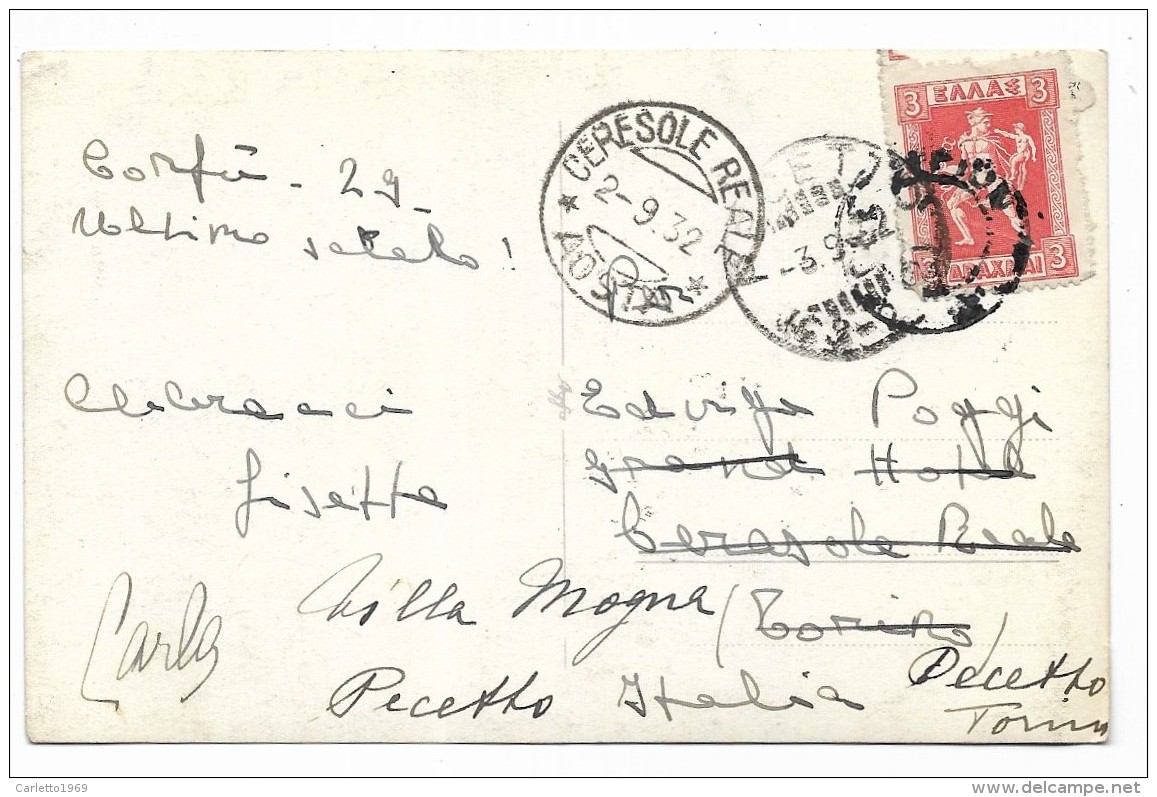 Corfù - 29
Ultimo saluto!
Abbracci
Lisetta
Carla
CERESOLE REALE
2-9.32
* AOSTA *
-3.9
3 ΕΛΛΑΣ 3
3 ΔΡΑΧΜΑΙ 3
Edvige Poggi
Grand Hotel
Cerasole Reale
(Torino)
Villa Mogna
Pecetto Italia
Pecetto
Torino
Carletto1969
delcampe.net